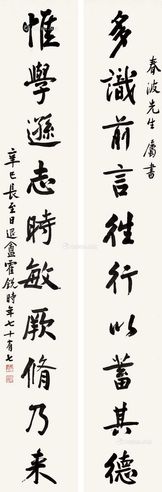 春波先生屬書
多識前言徃行以蓄其德
惟學遜志時敏厥脩乃来
辛巳長至日退盦霍銳時年七十有七